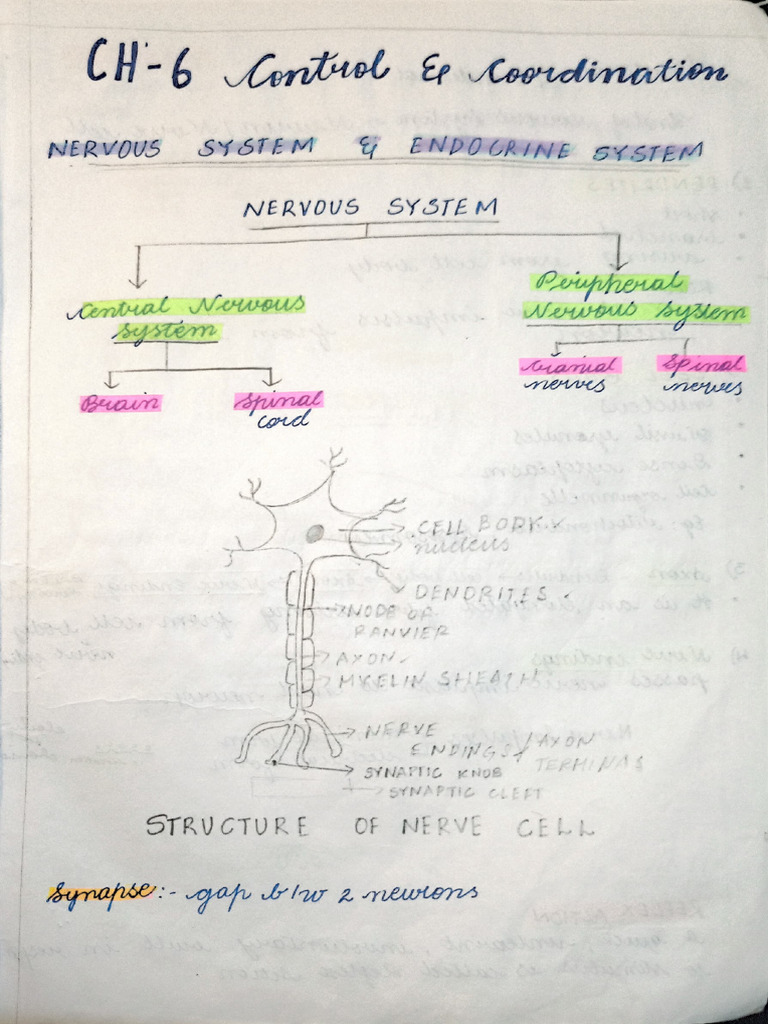 CH-6 Control & Coordination
NERVOUS SYSTEM & ENDOCRINE SYSTEM
NERVOUS SYSTEM
Central Nervous
System
Peripheral
Nervous System
Brain
Spinal
cord
Cranial
nerves
Spinal
nerves
CELL BODY
nucleus
DENDRITES
NODE OF
RANVIER
AXON
MYELIN SHEATH
NERVE
ENDINGS / AXON
TERMINAS
SYNAPTIC KNOB
SYNAPTIC CLEFT
STRUCTURE OF NERVE CELL
Synapse:- gap b/w 2 neurons